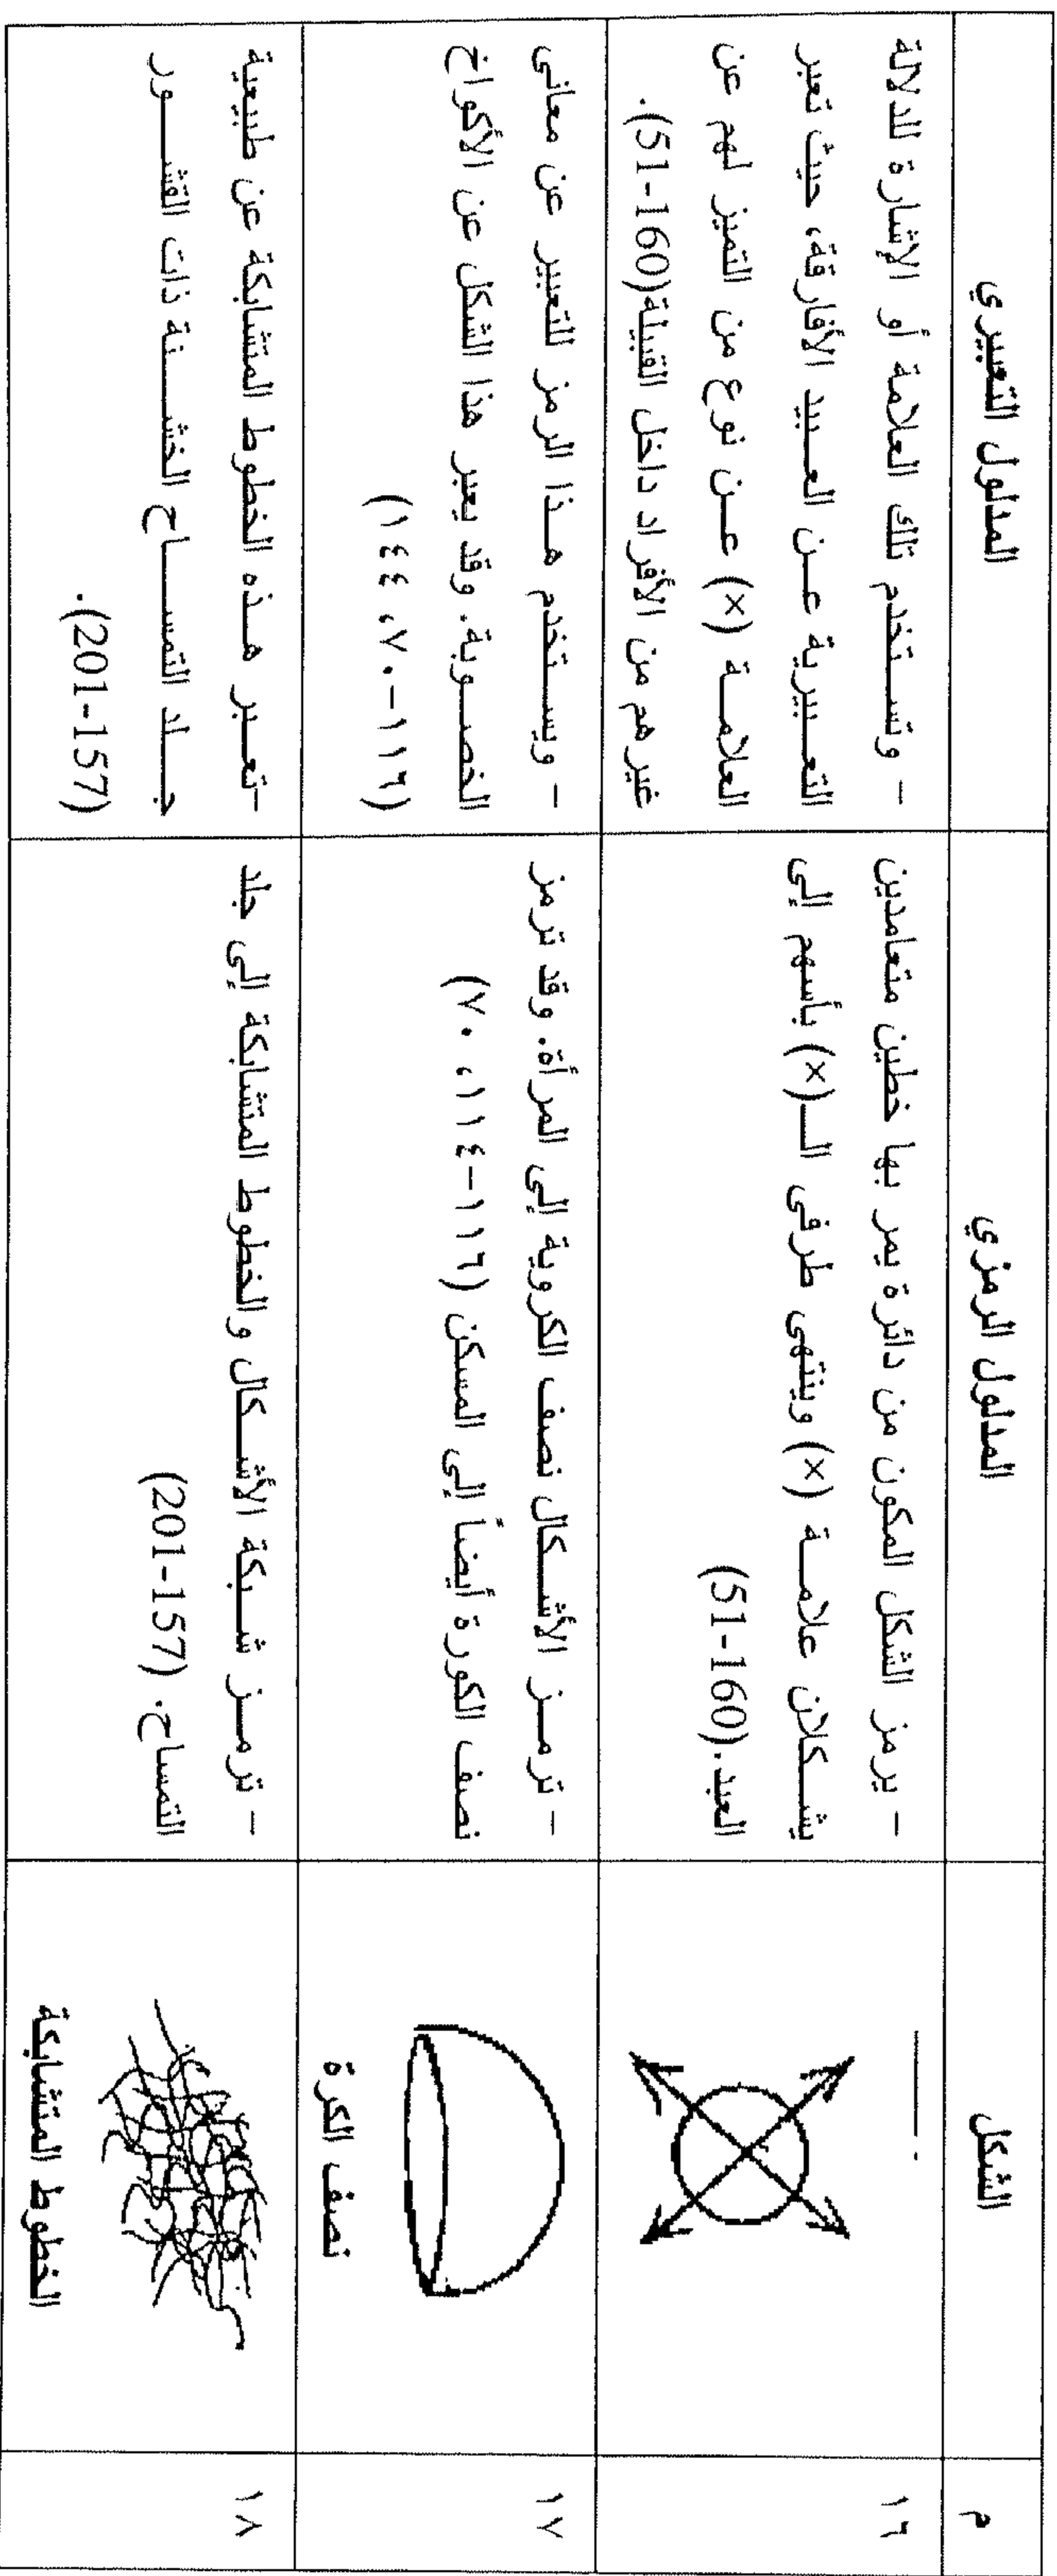 م
الشكل
المدلول الرمزي
المدلول التعبيري
١٦
- يرمز الشكل المكون من دائرة يمر بها خطين متعامدين
يشكلان علامة (×) وينتهى طرفى الـ(×) بأسهم إلى
العبد.(51-160)
- وتستخدم تلك العلامة أو الإشارة للدلالة
التعبيرية عن العبيد الأفارقة، حيث تعبر
العلامة (×) عن نوع من التميز لهم عن
غيرهم من الأفراد داخل القبيلة(51-160).
١٧
نصف الكرة
- ترمز الأشكال نصف الكروية إلى المرأة. وقد ترمز
نصف الكورة أيضاً إلى المسكن (١١٦-١١٤، ٧٠)
- ويستخدم هذا الرمز للتعبير عن معانى
الخصوبة. وقد يعبر هذا الشكل عن الأكواخ
(١١٦-٧٠، ١٤٤)
١٨
الخطوط المتشابكة
- ترمز شبكة الأشكال والخطوط المتشابكة إلى جلد
التمساح. (157-201)
-تعبر هذه الخطوط المتشابكة عن طبيعية
جلد التمساح الخشنة ذات القشور
(157-201).